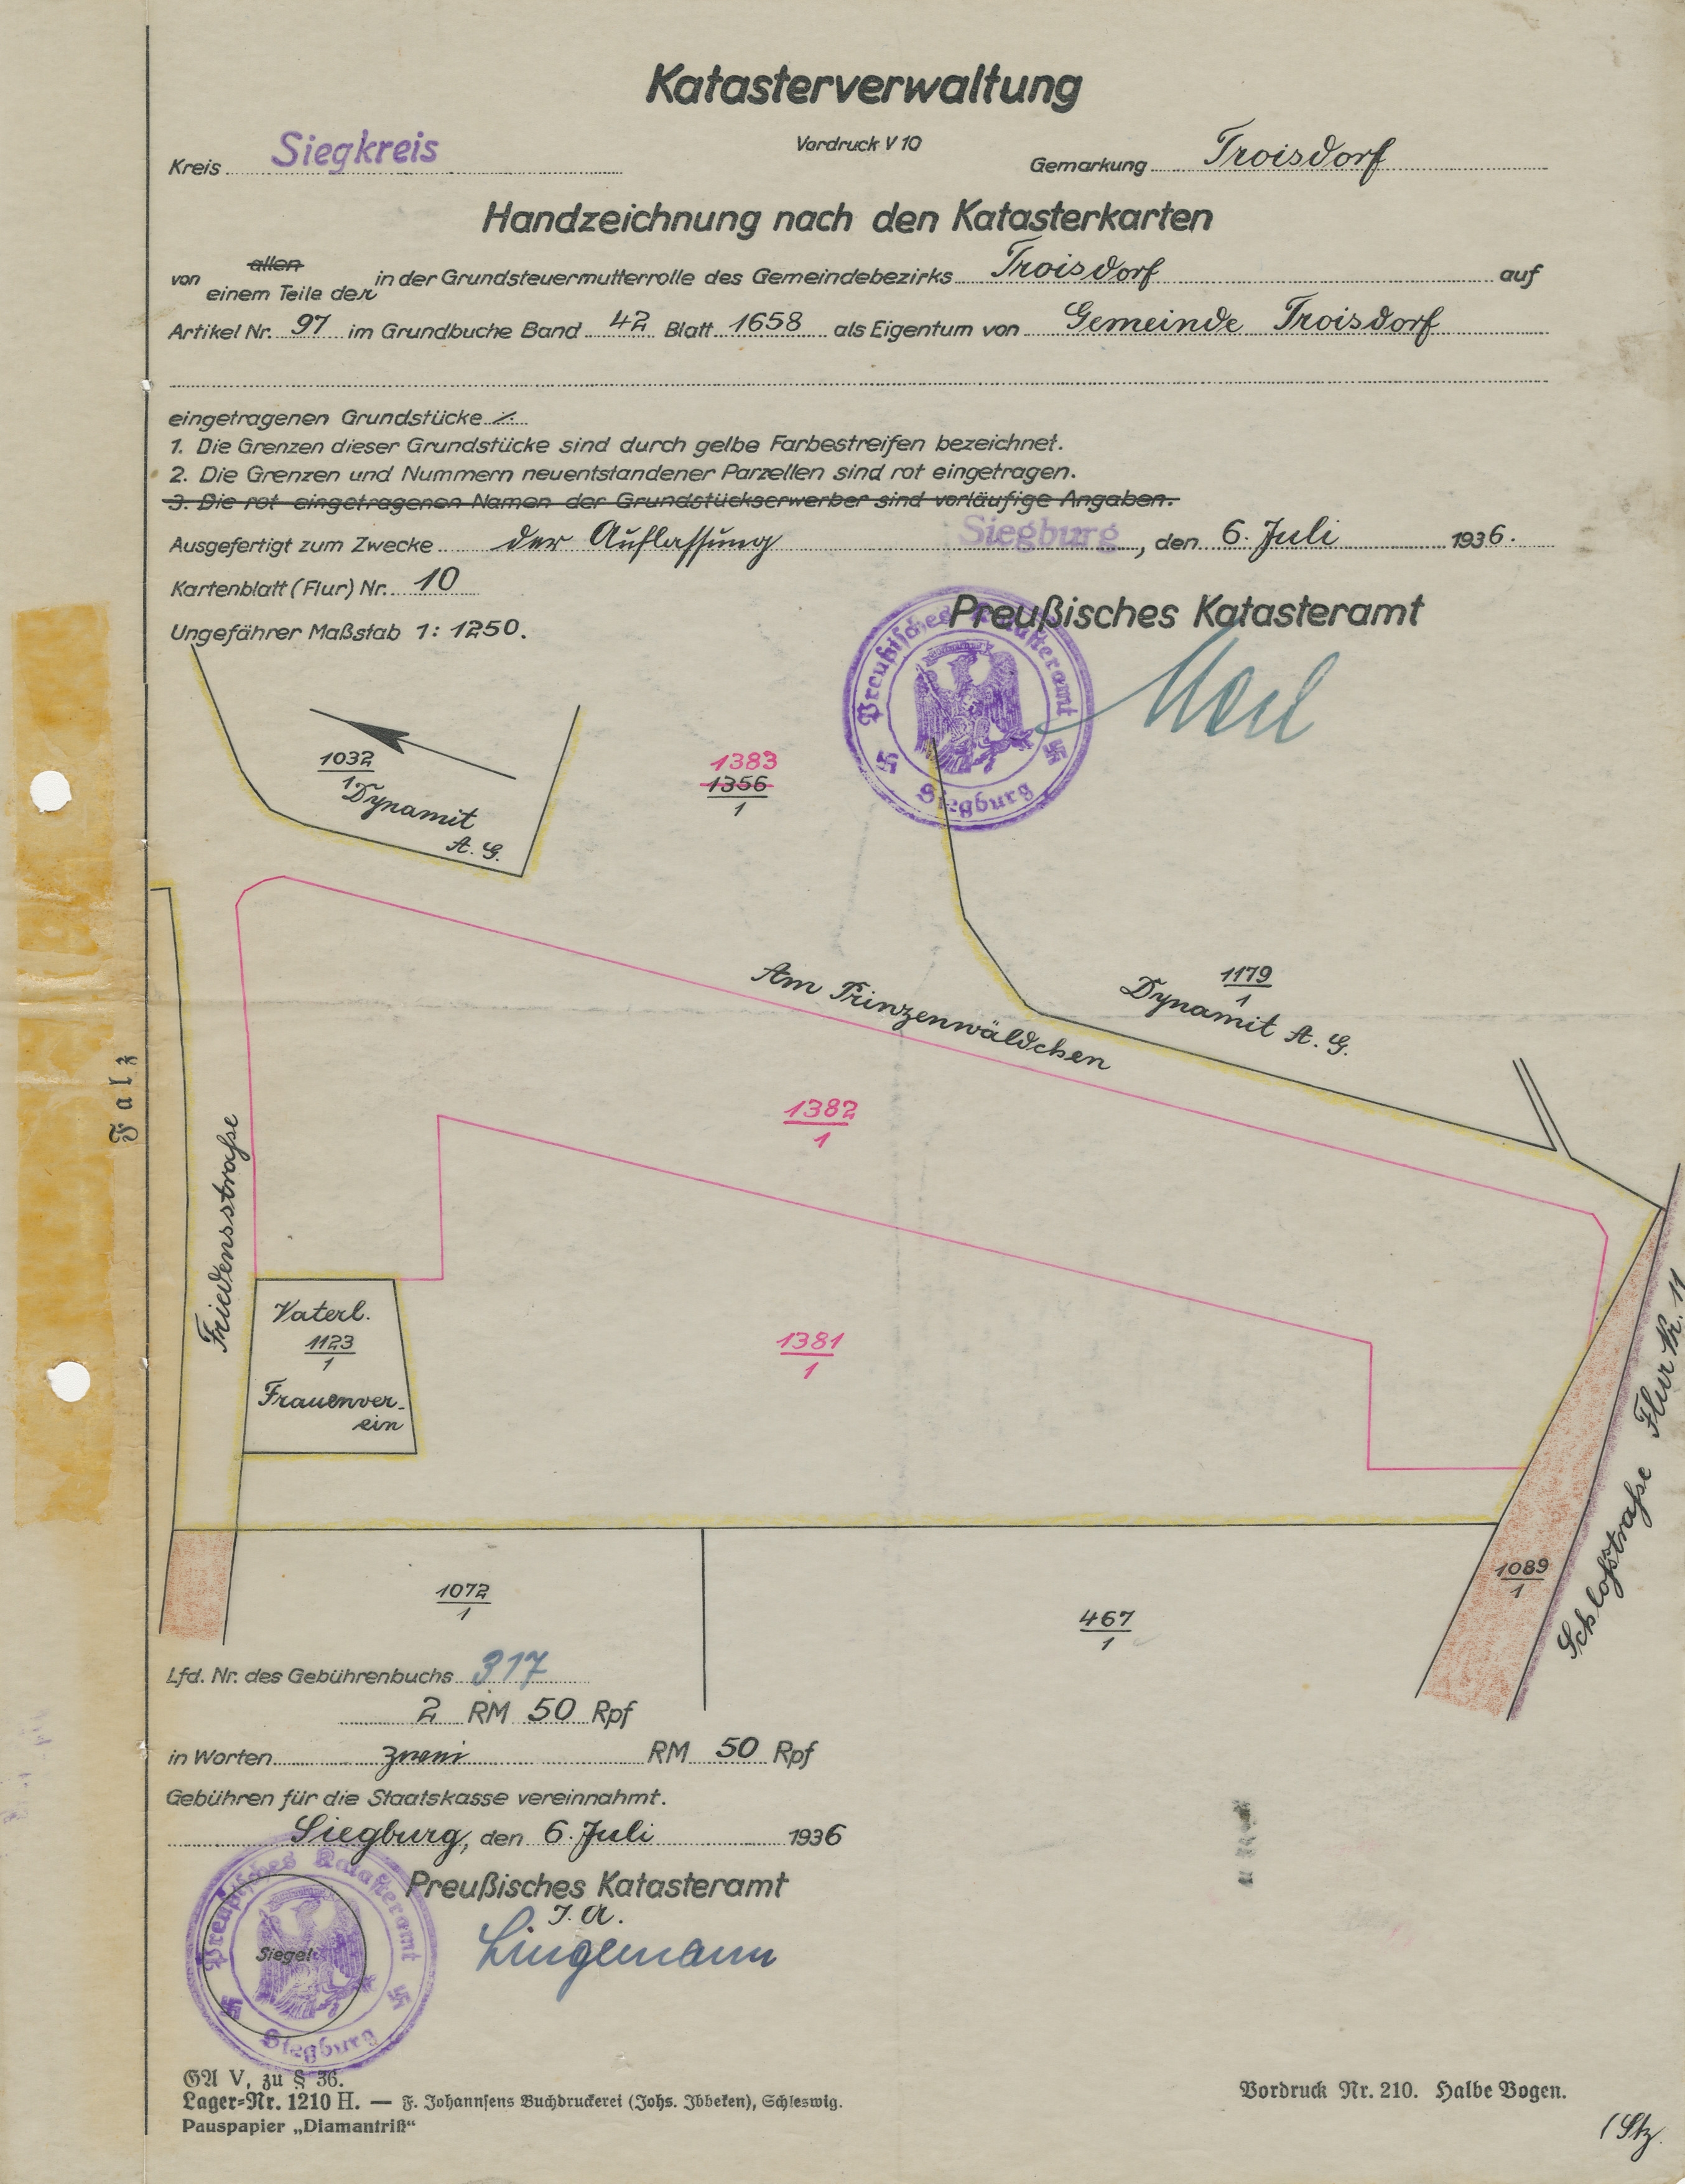 Katasterverwaltung
Kreis Siegkreis
Vordruck V 10
Gemarkung Troisdorf
Handzeichnung nach den Katasterkarten
von allen
einem Teile der in der Grundsteuermutterrolle des Gemeindebezirks Troisdorf auf
Artikel Nr. 97 im Grundbuche Band 42 Blatt 1658 als Eigentum von Gemeinde Troisdorf
eingetragenen Grundstücke
1. Die Grenzen dieser Grundstücke sind durch gelbe Farbestreifen bezeichnet.
2. Die Grenzen und Nummern neuentstandener Parzellen sind rot eingetragen.
3. Die rot eingetragenen Namen der Grundstückserwerber sind vorläufige Angaben.
Ausgefertigt zum Zwecke der Auflassung Siegburg, den 6. Juli 1936.
Kartenblatt (Flur) Nr. 10
Preußisches Katasteramt
Ungefährer Maßstab 1: 1250.
Preußisches Katasteramt
Siegburg
1032
1
Dynamit
A. G.
1383
1356
1
1179
1
Dynamit A. G.
Am Prinzenwäldchen
Falz
1382
1
Friedensstraße
Vaterl.
1123
1
Frauenver-
ein
1381
1
Schloßstraße Flur Nr. 11
1089
1
1072
1
467
1
Lfd. Nr. des Gebührenbuchs 317
2 RM 50 Rpf
in Worten zwei RM 50 Rpf
Gebühren für die Staatskasse vereinnahmt.
Siegburg, den 6. Juli 1936
Preußisches Katasteramt
I. A.
Lingemann
Preußisches Katasteramt
Siegel
Siegburg
GA V, zu § 36.
Lager=Nr. 1210 H. — F. Johannsens Buchdruckerei (Johs. Ibbeken), Schleswig.
Pauspapier „Diamantriß“
Vordruck Nr. 210. Halbe Bogen.